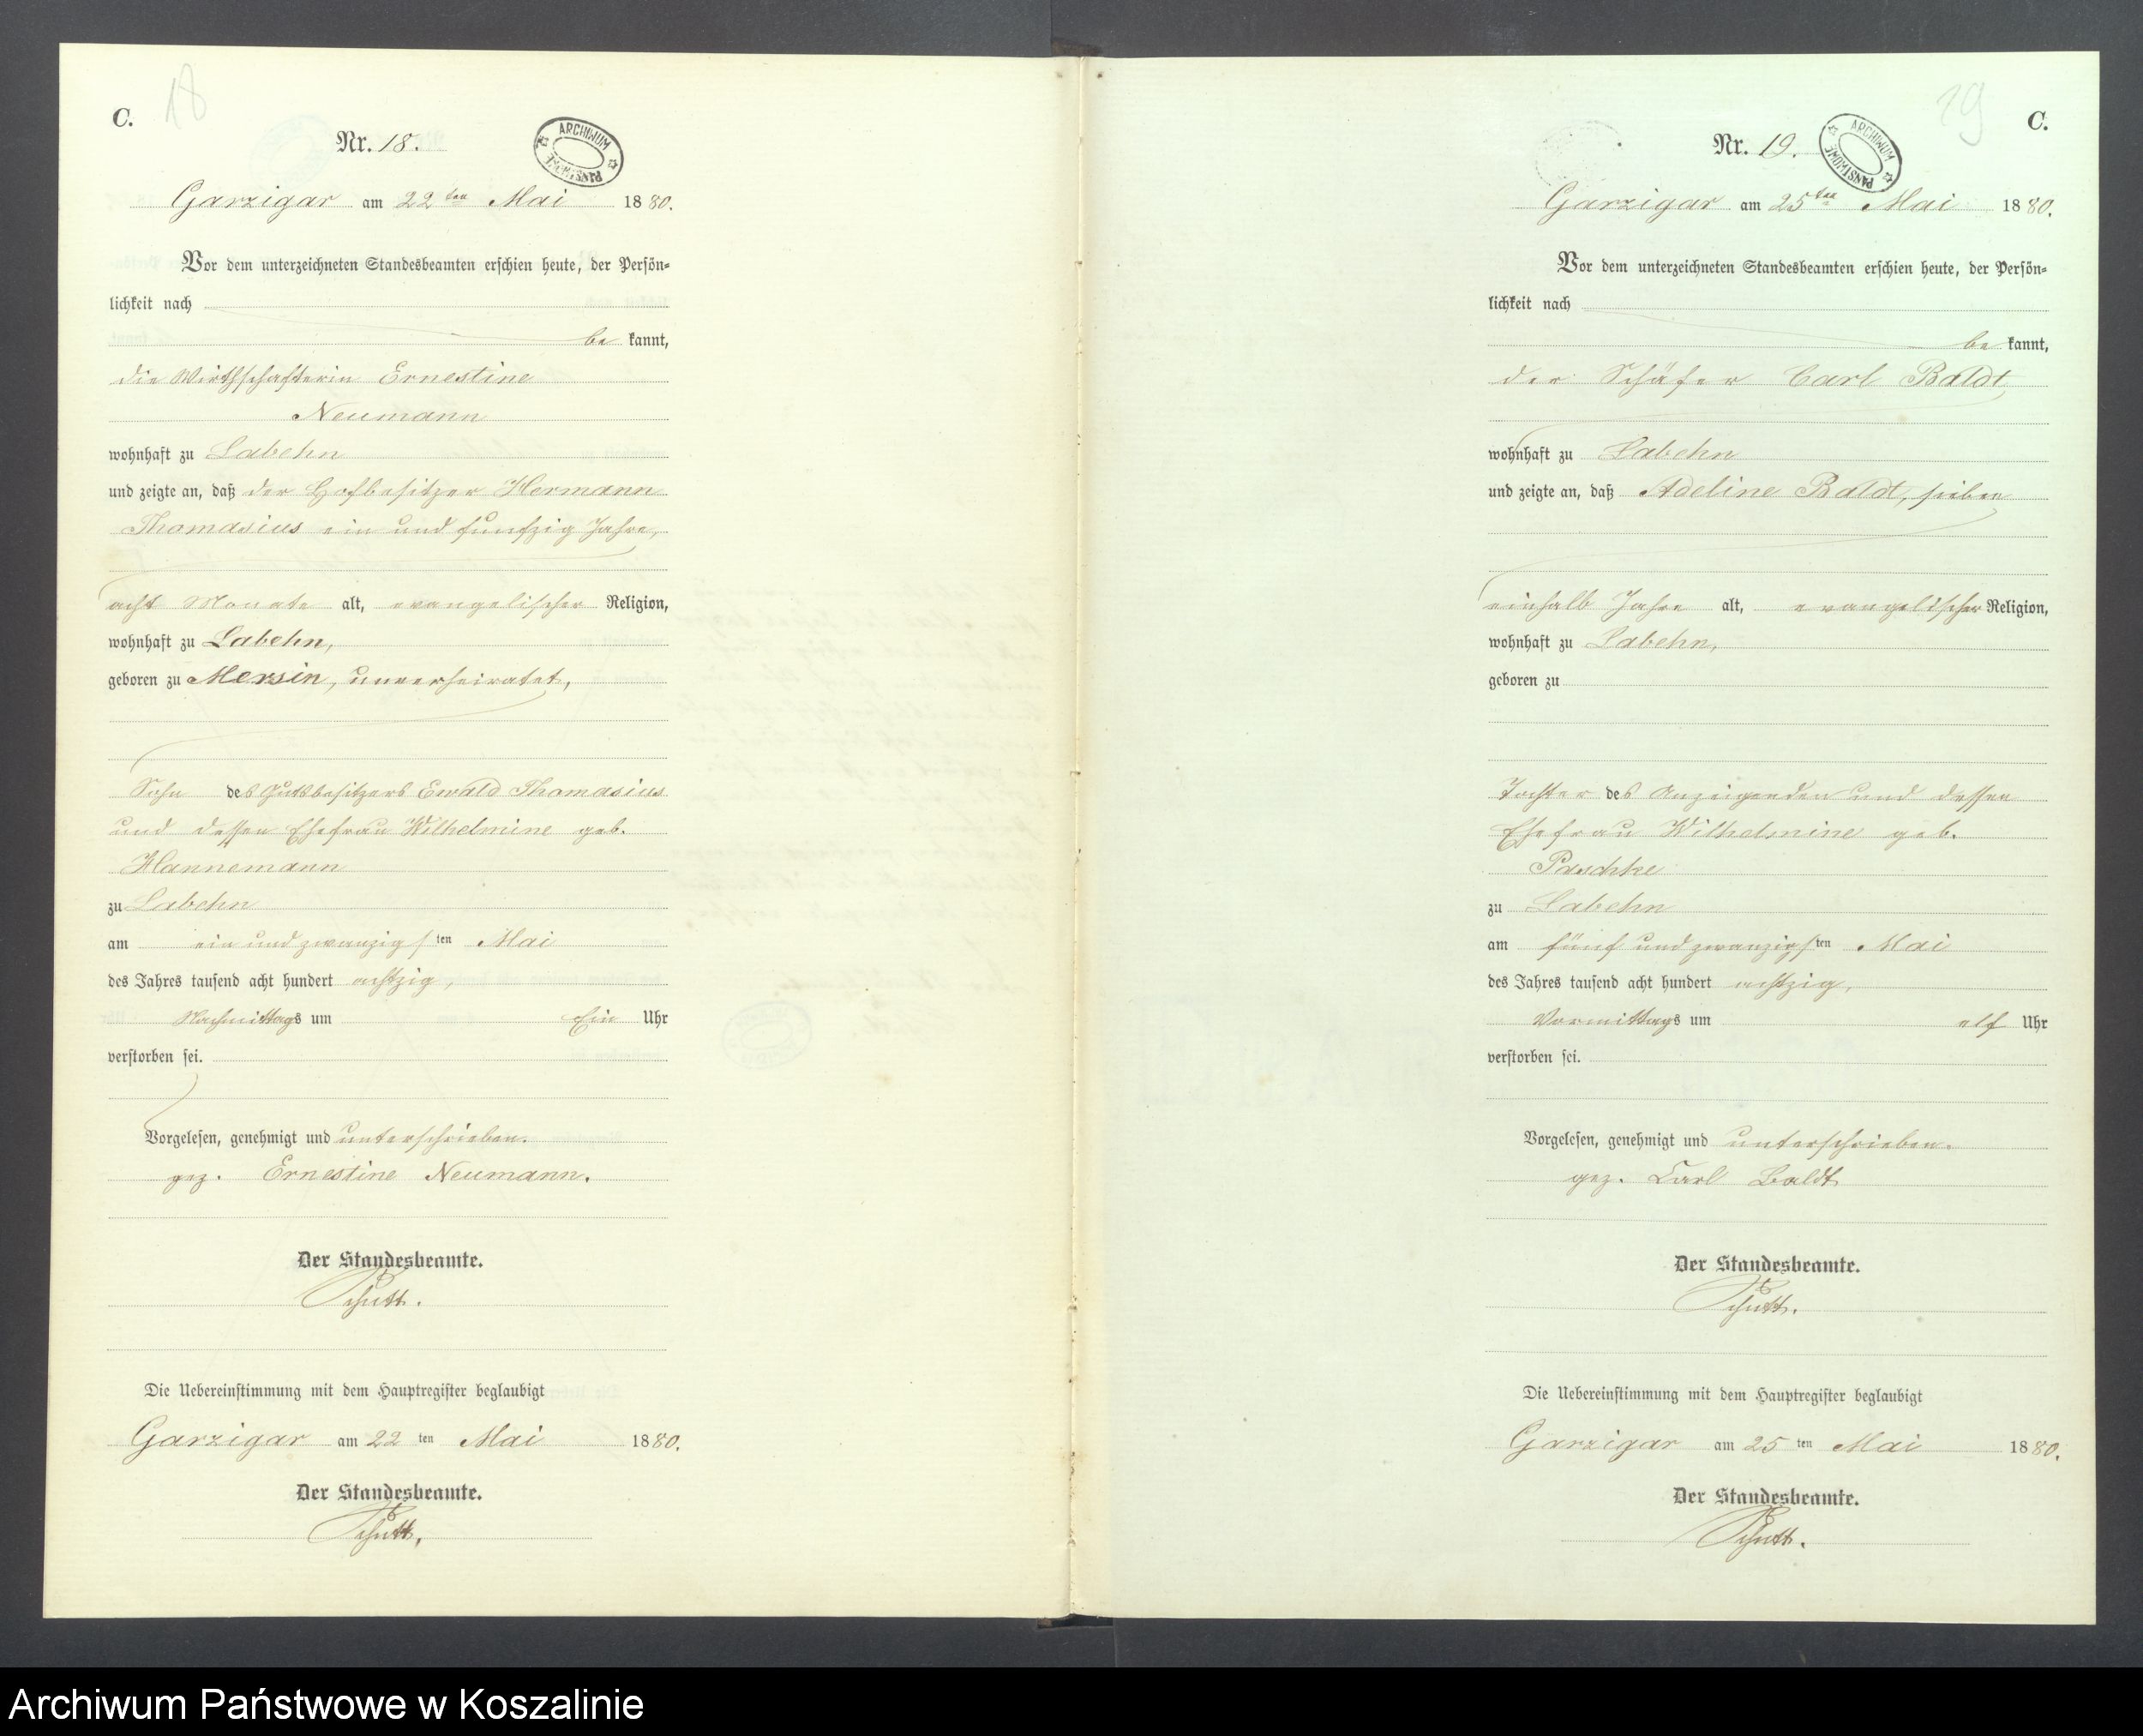 C.
18
Nr. 18.
ARCHIWUM PAŃSTWOWE
Garzigar am 22 ten Mai 1880.
Vor dem unterzeichneten Standesbeamten erschien heute, der Persön-
lichkeit nach
be kannt,
die Wirthschafterin Ernestine
Neumann
wohnhaft zu Labehn
und zeigte an, daß der Hofbesitzer Hermann
Thomasius ein und funfzig Jahre,
acht Monate alt, evangelischer Religion,
wohnhaft zu Labehn,
geboren zu Mersin, unverheiratet,
Sohn des Gutsbesitzers Ewald Thomasius
und dessen Ehefrau Wilhelmine geb.
Hannemann
zu Labehn
am ein und zwanzigsten Mai
des Jahres tausend acht hundert achtzig,
Nachmittags um Ein Uhr
verstorben sei.
Vorgelesen, genehmigt und unterschrieben.
gez. Ernestine Neumann.
Der Standesbeamte.
Schütt.
Die Uebereinstimmung mit dem Hauptregister beglaubigt
Garzigar am 22 ten Mai 1880.
Der Standesbeamte.
Schütt.
19
C.
Nr. 19.
ARCHIWUM PAŃSTWOWE
Garzigar am 25ten Mai 1880.
Vor dem unterzeichneten Standesbeamten erschien heute, der Persön-
lichkeit nach
be kannt,
der Schäfer Carl Baldt
wohnhaft zu Labehn
und zeigte an, daß Adeline Baldt, sieben
einhalb Jahre alt, evangelischer Religion,
wohnhaft zu Labehn,
geboren zu
Tochter des Anzeigenden und dessen
Ehefrau Wilhelmine geb.
Paschke
zu Labehn
am fünf und zwanzigsten Mai
des Jahres tausend acht hundert achtzig,
Vormittags um elf Uhr
verstorben sei.
Vorgelesen, genehmigt und unterschrieben.
gez. Carl Baldt
Der Standesbeamte.
Schütt.
Die Uebereinstimmung mit dem Hauptregister beglaubigt
Garzigar am 25 ten Mai 1880.
Der Standesbeamte.
Schütt.
Archiwum Państwowe w Koszalinie